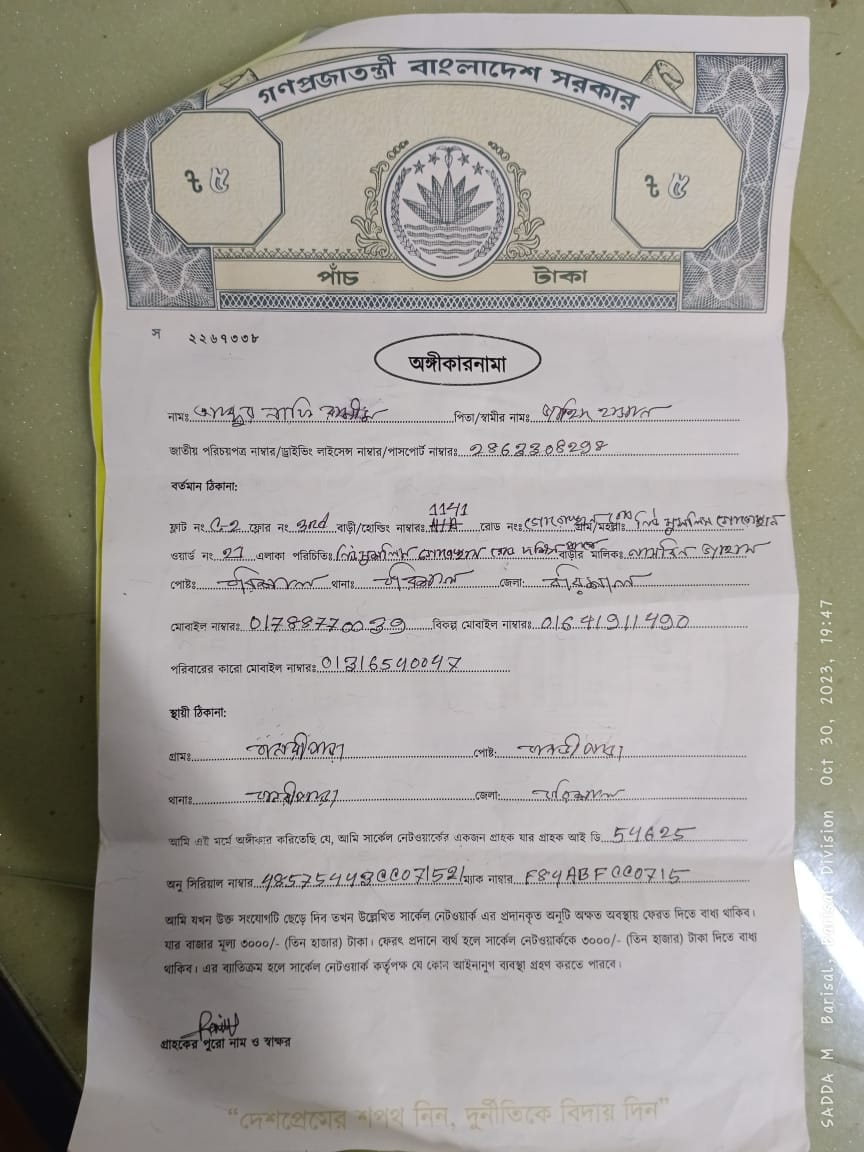 গণপ্রজাতন্ত্রী বাংলাদেশ সরকার
৳ ৫
৳ ৫
পাঁচ টাকা
স ২২৬৭৩৩৮
অঙ্গীকারনামা
নামঃ পিতা/স্বামীর নামঃ
জাতীয় পরিচয়পত্র নাম্বার/ড্রাইভিং লাইসেন্স নাম্বার/পাসপোর্ট নাম্বারঃ 2863308298
বর্তমান ঠিকানা:
1141
ফ্লাট নং C-2 ফ্লোর নং 3rd বাড়ী/হোল্ডিং নাম্বারঃ রোড নংঃ গ্রাম/মহল্লাঃ
ওয়ার্ড নং 21 এলাকা পরিচিতিঃ বাড়ীর মালিকঃ
পোষ্টঃ বরিশাল থানাঃ বরিশাল জেলা: বরিশাল
মোবাইল নাম্বারঃ 01788770039 বিকল্প মোবাইল নাম্বারঃ 01641911490
পরিবারের কারো মোবাইল নাম্বারঃ 01316540047
স্থায়ী ঠিকানা:
গ্রামঃ পোষ্ট:
থানাঃ জেলা: বরিশাল
আমি এই মর্মে অঙ্গীকার করিতেছি যে, আমি সার্কেল নেটওয়ার্কের একজন গ্রাহক যার গ্রাহক আই ডি 54625
অনু সিরিয়াল নাম্বার ম্যাক নাম্বার F84ABFCC0715
আমি যখন উক্ত সংযোগটি ছেড়ে দিব তখন উল্লেখিত সার্কেল নেটওয়ার্ক এর প্রদানকৃত অনুটি অক্ষত অবস্থায় ফেরত দিতে বাধ্য থাকিব।
যার বাজার মূল্য ৩০০০/- (তিন হাজার) টাকা। ফেরৎ প্রদানে ব্যর্থ হলে সার্কেল নেটওয়ার্ককে ৩০০০/- (তিন হাজার) টাকা দিতে বাধ্য
থাকিব। এর ব্যতিক্রম হলে সার্কেল নেটওয়ার্ক কর্তৃপক্ষ যে কোন আইনানুগ ব্যবস্থা গ্রহণ করতে পারবে।
গ্রাহকের পুরো নাম ও স্বাক্ষর
“দেশপ্রেমের শপথ নিন, দুর্নীতিকে বিদায় দিন”
SADDA M Barisal, Barisal Division Oct 30, 2023, 19:47